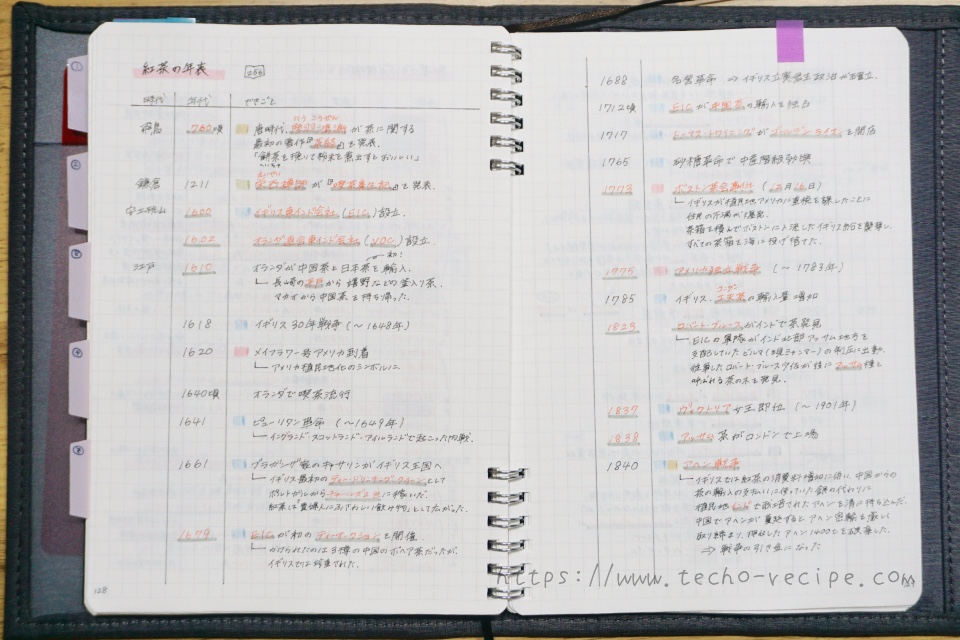 紅茶の年表
時代 年代 できごと
飛鳥 760頃 唐時代、陸羽 が茶に関する
最初の著作『茶経』を発表。
鎌倉 1211 栄西禅師が『喫茶養生記』を発表。
安土桃山 1600 イギリス東インド会社(EIC)設立。
1602 オランダ連合東インド会社(VOC)設立。
初!
江戸 1610 オランダが中国茶と日本茶を輸入。
長崎の平戸から嬉野などの釜入り茶、
マカオから中国茶を持ち帰った。
1618 イギリス30年戦争(〜1648年)
1620 メイフラワー号アメリカ到着
アメリカ植民地化のシンボルに
1640頃 オランダで喫茶流行
1641 ピューリタン革命(〜1649年)
イングランド・スコットランド・アイルランドで起こった内戦。
1661 ブラガンザ家のキャサリンがイギリス王国へ
イギリス最初のティードリンキングクィーンとして
ポルトガルからチャールズ2世に嫁いだ。
紅茶は「貴婦人にふさわしい飲み物」として広がった。
1679 EICが初のティーオークションを開催
かけられたのは3樽の中国のボヘア茶だったが、
イギリスでは珍重された。
128
1688 名誉革命 ⇒イギリス立憲君主政治が確立。
1712頃 EICが中国茶の輸入を独占
1717 トーマス・トワイニングがゴールデンライオンを開店
1765 砂糖革命で中産階級勃興
1773 ボストン茶会事件
イギリスが植民地アメリカに直税を課したことに
住民の不満が爆発。
茶箱を積んでボストンに入港したイギリス船を襲撃し、
すべての茶箱を海に投げ捨てた。
1775 アメリカ独立戦争(〜1783年)
1785 イギリス、紅茶の輸入量増加
1823 ロバート・ブルースがインドで茶発見
EICの軍隊がインド北部アッサム地方を
支配していたビルマ(現ミャンマー)の制圧に出動。
従軍したロバート・ブルース少佐が後にアッサム種と
呼ばれる茶の木を発見。
1837 ヴィクトリア女王即位(〜1901年)
1838 アッサム茶がロンドンで上場
1840 アヘン戦争
イギリスでは紅茶の消費料増加に伴い、中国からの
茶の輸入の支払いに使っていた銀の代わりに
植民地インドで栽培されたアヘンを清に持ち込んだ。
中国でアヘンが蔓延するとアヘン密輸を厳しく
取り締まり、押収したアヘン1400tを破棄した。
⇒戦争の引き金になった
https://www.techo-recipe.com